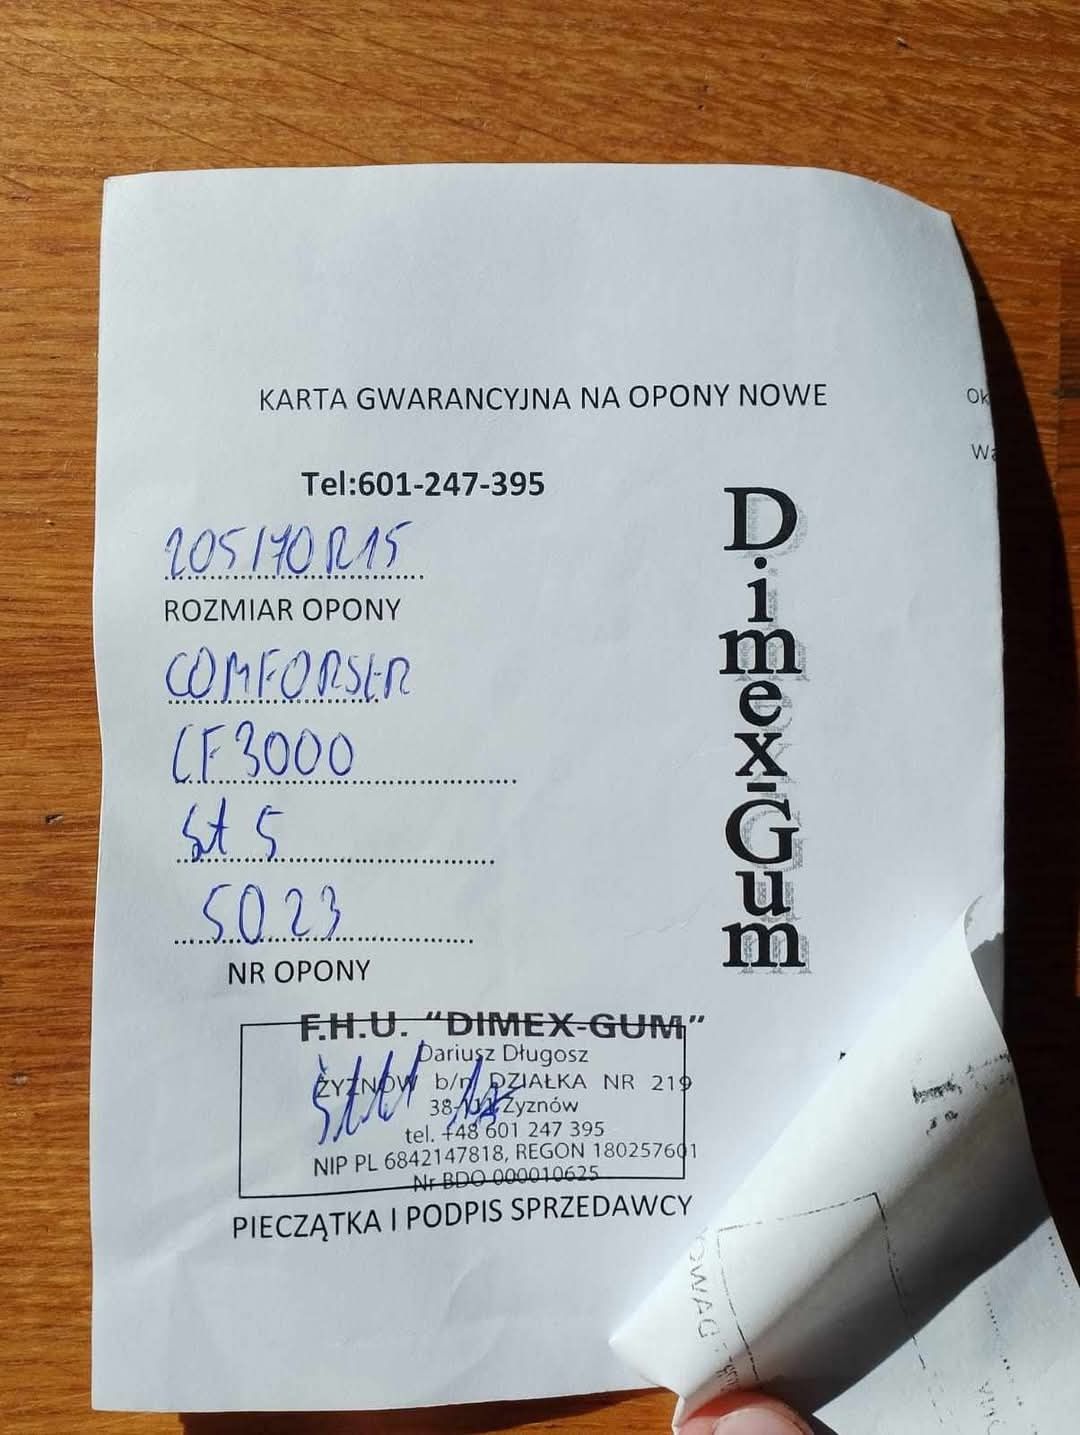 KARTA GWARANCYJNA NA OPONY NOWE
Tel:601-247-395
205/70 R15
ROZMIAR OPONY
COMFORSER
CF3000
szt 5
5023
NR OPONY
Dimex-Gum
F.H.U. "DIMEX-GUM"
Dariusz Długosz
ŻYZNÓW b/n DZIAŁKA NR 219
38-111 Żyznów
tel. +48 601 247 395
NIP PL 6842147818, REGON 180257601
Nr BDO 000010625
PIECZĄTKA I PODPIS SPRZEDAWCY